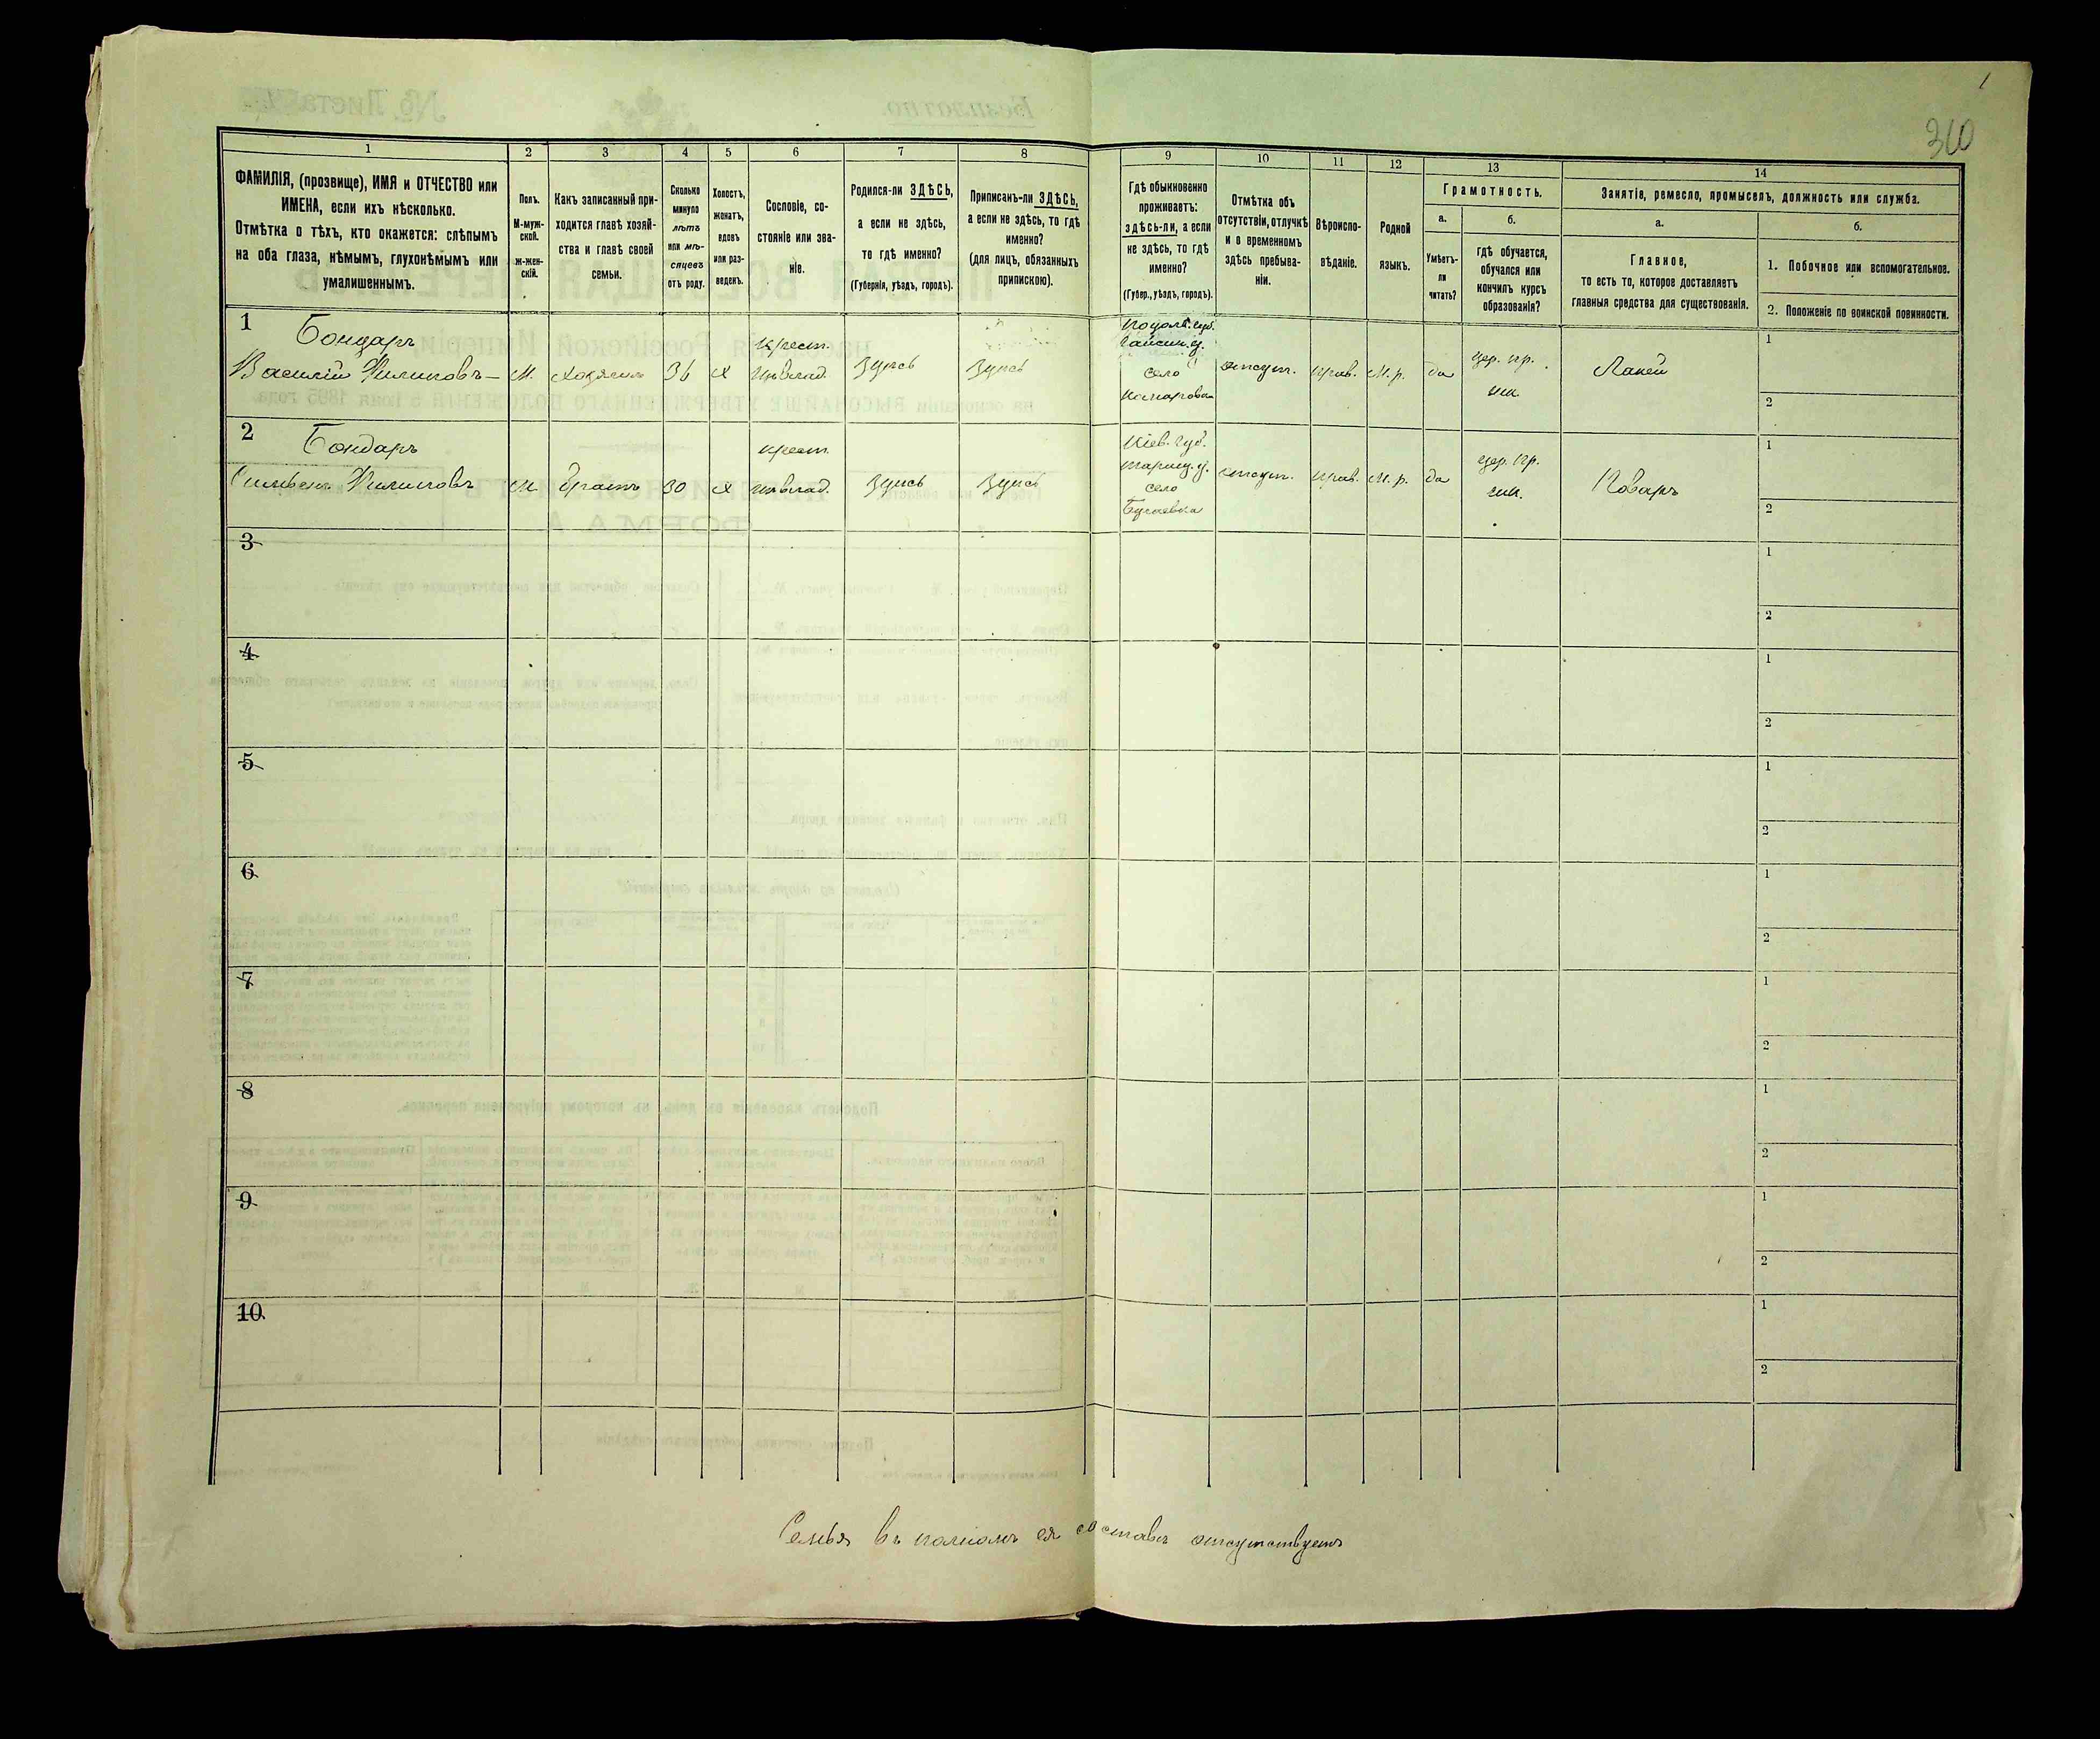 1
310
1
2
3
4
5
6
7
8
9
10
11
12
13
14
ФАМИЛІЯ, (прозвище), ИМЯ и ОТЧЕСТВО или
ИМЕНА, если ихъ нѣсколько.
Отмѣтка о тѣхъ, кто окажется: слѣпымъ
на оба глаза, нѣмымъ, глухонѣмымъ или
умалишеннымъ.
Полъ.
М-муж-
ской.
ж-жен-
скій.
Какъ записанный при-
ходится главѣ хозяй-
ства и главѣ своей
семьи.
Сколько
минуло
лѣтъ
или мѣ-
сяцевъ
отъ роду.
Холостъ,
женатъ,
вдовъ
или раз-
веденъ.
Сословіе, со-
стояніе или зва-
ніе.
Родился-ли ЗДѢСЬ,
а если не здѣсь,
то гдѣ именно?
(Губернія, уѣздъ, городъ).
Приписанъ-ли ЗДѢСЬ,
а если не здѣсь, то гдѣ
именно?
(для лицъ, обязанныхъ
припискою).
Гдѣ обыкновенно
проживаетъ:
здѣсь-ли, а если
не здѣсь, то гдѣ
именно?
(Губер., уѣздъ, городъ).
Отмѣтка объ
отсутствіи, отлучкѣ
и о временномъ
здѣсь пребыва-
ніи.
Вѣроиспо-
вѣданіе.
Родной
языкъ.
Грамотность.
а.
Умѣетъ-
ли
читать?
б.
гдѣ обучается,
обучался или
кончилъ курсъ
образованія?
Занятіе, ремесло, промыселъ, должность или служба.
а.
Главное,
то есть то, которое доставляетъ
главныя средства для существованія.
б.
1. Побочное или вспомогательное.
2. Положеніе по воинской повинности.
1
Бондаръ
Василій Филиповъ-
М.
хозяинъ
36
х
крест.
здѣсь
здѣсь
Подол. губ.
Гайсин. у.
село
отсут.
прав.
м. р.
да
цер. пр.
шк.
Лакей
1
2
2
Бондаръ
Филиповъ
М
братъ
30
х
крест.
здѣсь
здѣсь
Кіев. губ.
село
отсут.
прав.
м. р.
да
цер. пр.
шк.
Поваръ
1
2
3
1
2
4
1
2
5
1
2
6
1
2
7
1
2
8
1
2
9
1
2
10
1
2
Семья въ полномъ ея составѣ отсутствуетъ